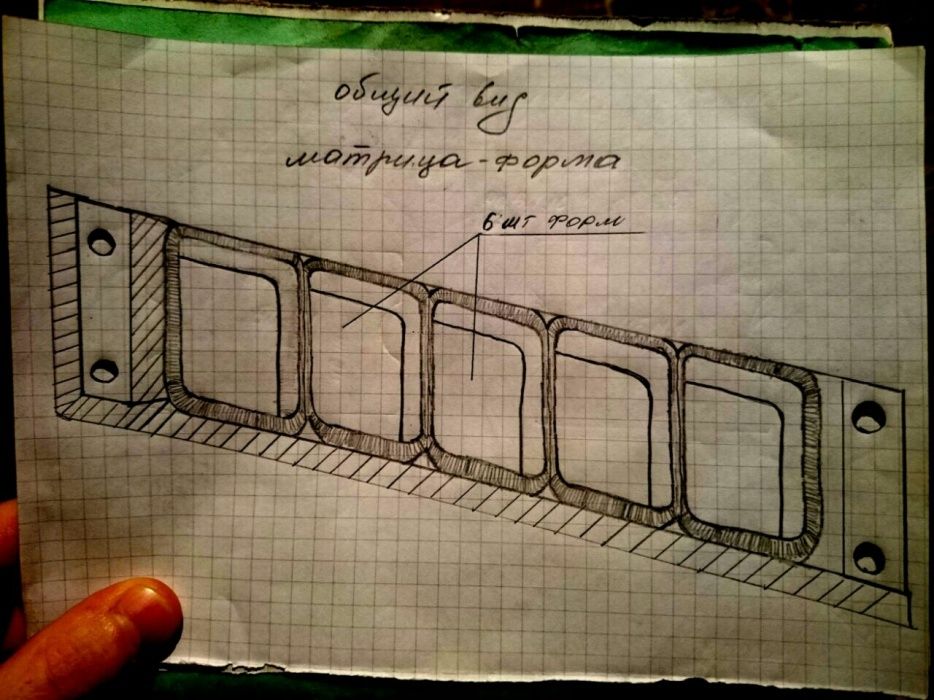 общий вид
матрица-форма
6 шт форм